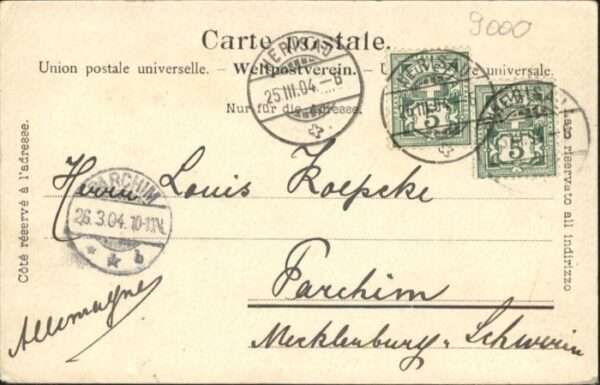 9000
Carte postale.
Union postale universelle. – Weltpostverein. – U universale.
Nur für die Adresse.
HERISAU
25 III.04.–6
HERISAU
III.04
HERISAU
5
5
Côté réservé à l'adresse.
Lato riservato all indirizzo
Herrn Louis Koepcke
PARCHIM
26.3.04.10-11V.
* * b
Parchim
Allemagne
Mecklenburg-Schwerin